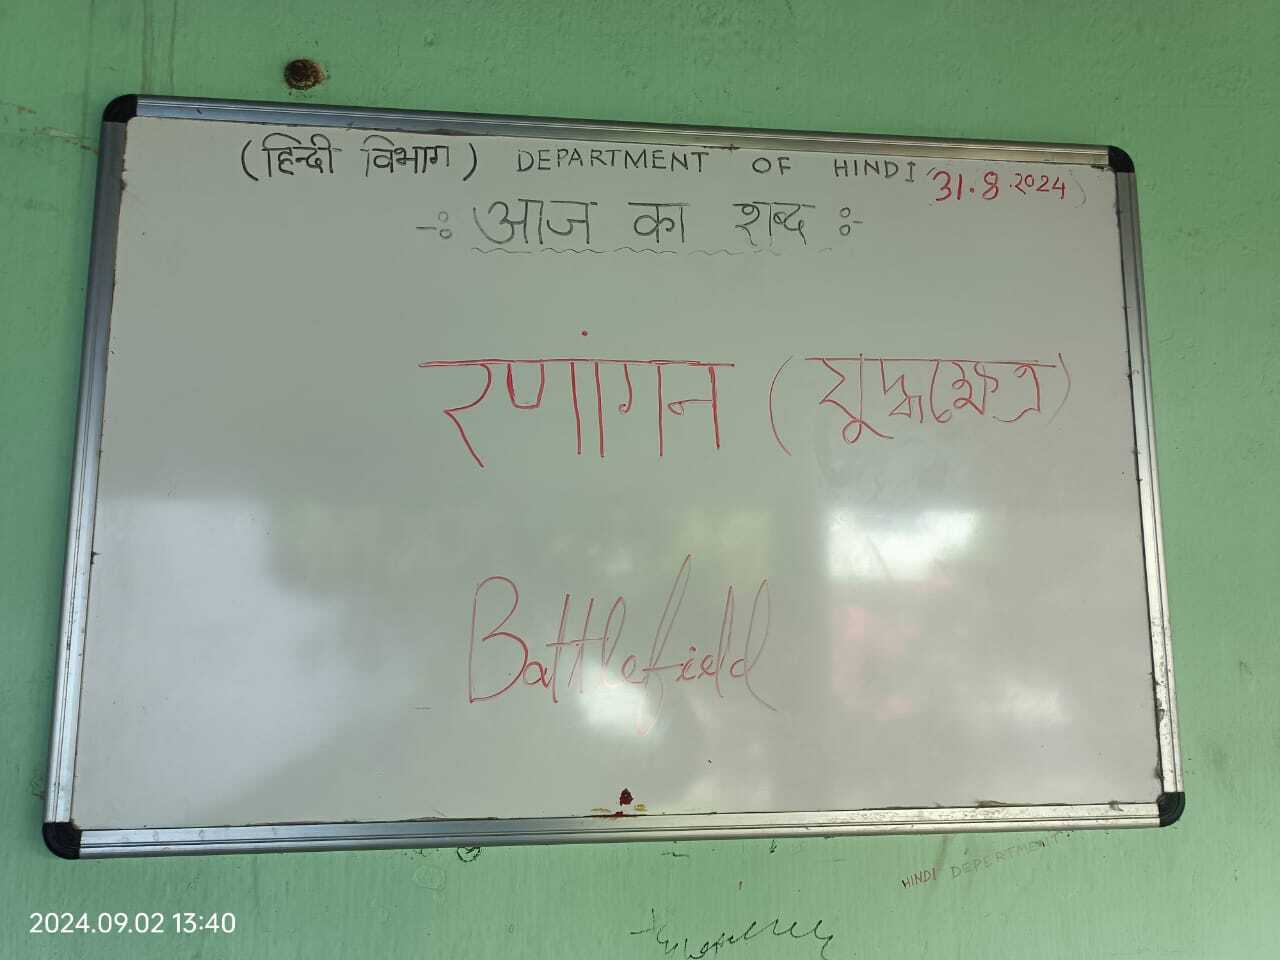 (हिन्दी विभाग) DEPARTMENT OF HINDI
31.8.2024
-: आज का शब्द :-
रणांगन (युद्धक्षेत्र)
Battlefield
HINDI DEPERTMENT
2024.09.02 13:40